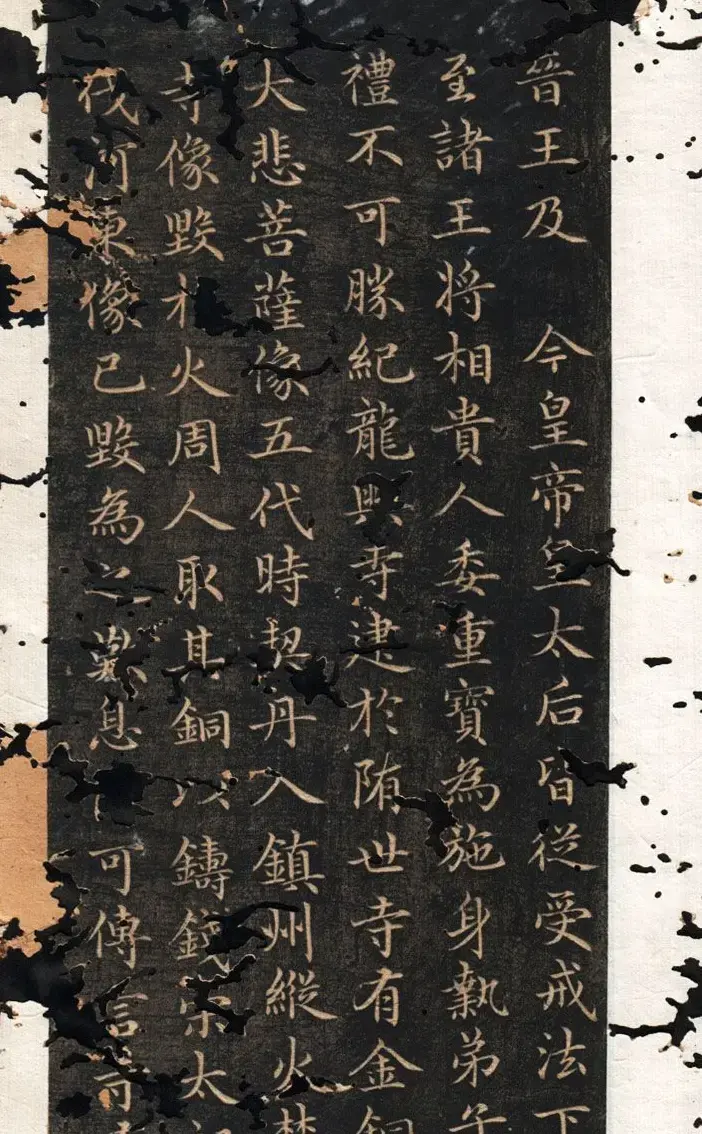 晉王及　今皇帝皇太后皆從受戒法下
至諸王將相貴人委重寶為施身執弟子
禮不可勝紀龍興寺建於隋世寺有金銅
大悲菩薩像五代時契丹入鎮州縱火焚
寺像毀於火周人取其銅以鑄錢宋太
伐河東像已毀為之歎息可傳言寺